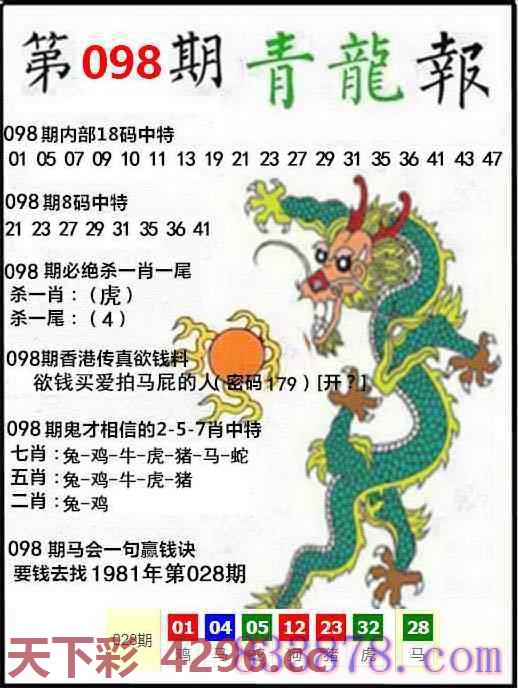 第098期青龍報
098期内部18码中特
01 05 07 09 10 11 13 19 21 23 27 29 31 35 36 41 43 47
098期8码中特
21 23 27 29 31 35 36 41
098期必绝杀一肖一尾
杀一肖：（虎）
杀一尾：（4）
098期香港传真欲钱料
欲钱买爱拍马屁的人(密码179)[开?]
098期鬼才相信的2-5-7肖中特
七肖：兔-鸡-牛-虎-猪-马-蛇
五肖：兔-鸡-牛-虎-猪
二肖：兔-鸡
098期马会一句赢钱诀
要钱去找1981年第028期
028期 01 04 05 12 23 32 28
鸡 马 蛇 狗 猪 虎 马
天下彩 4296.cc